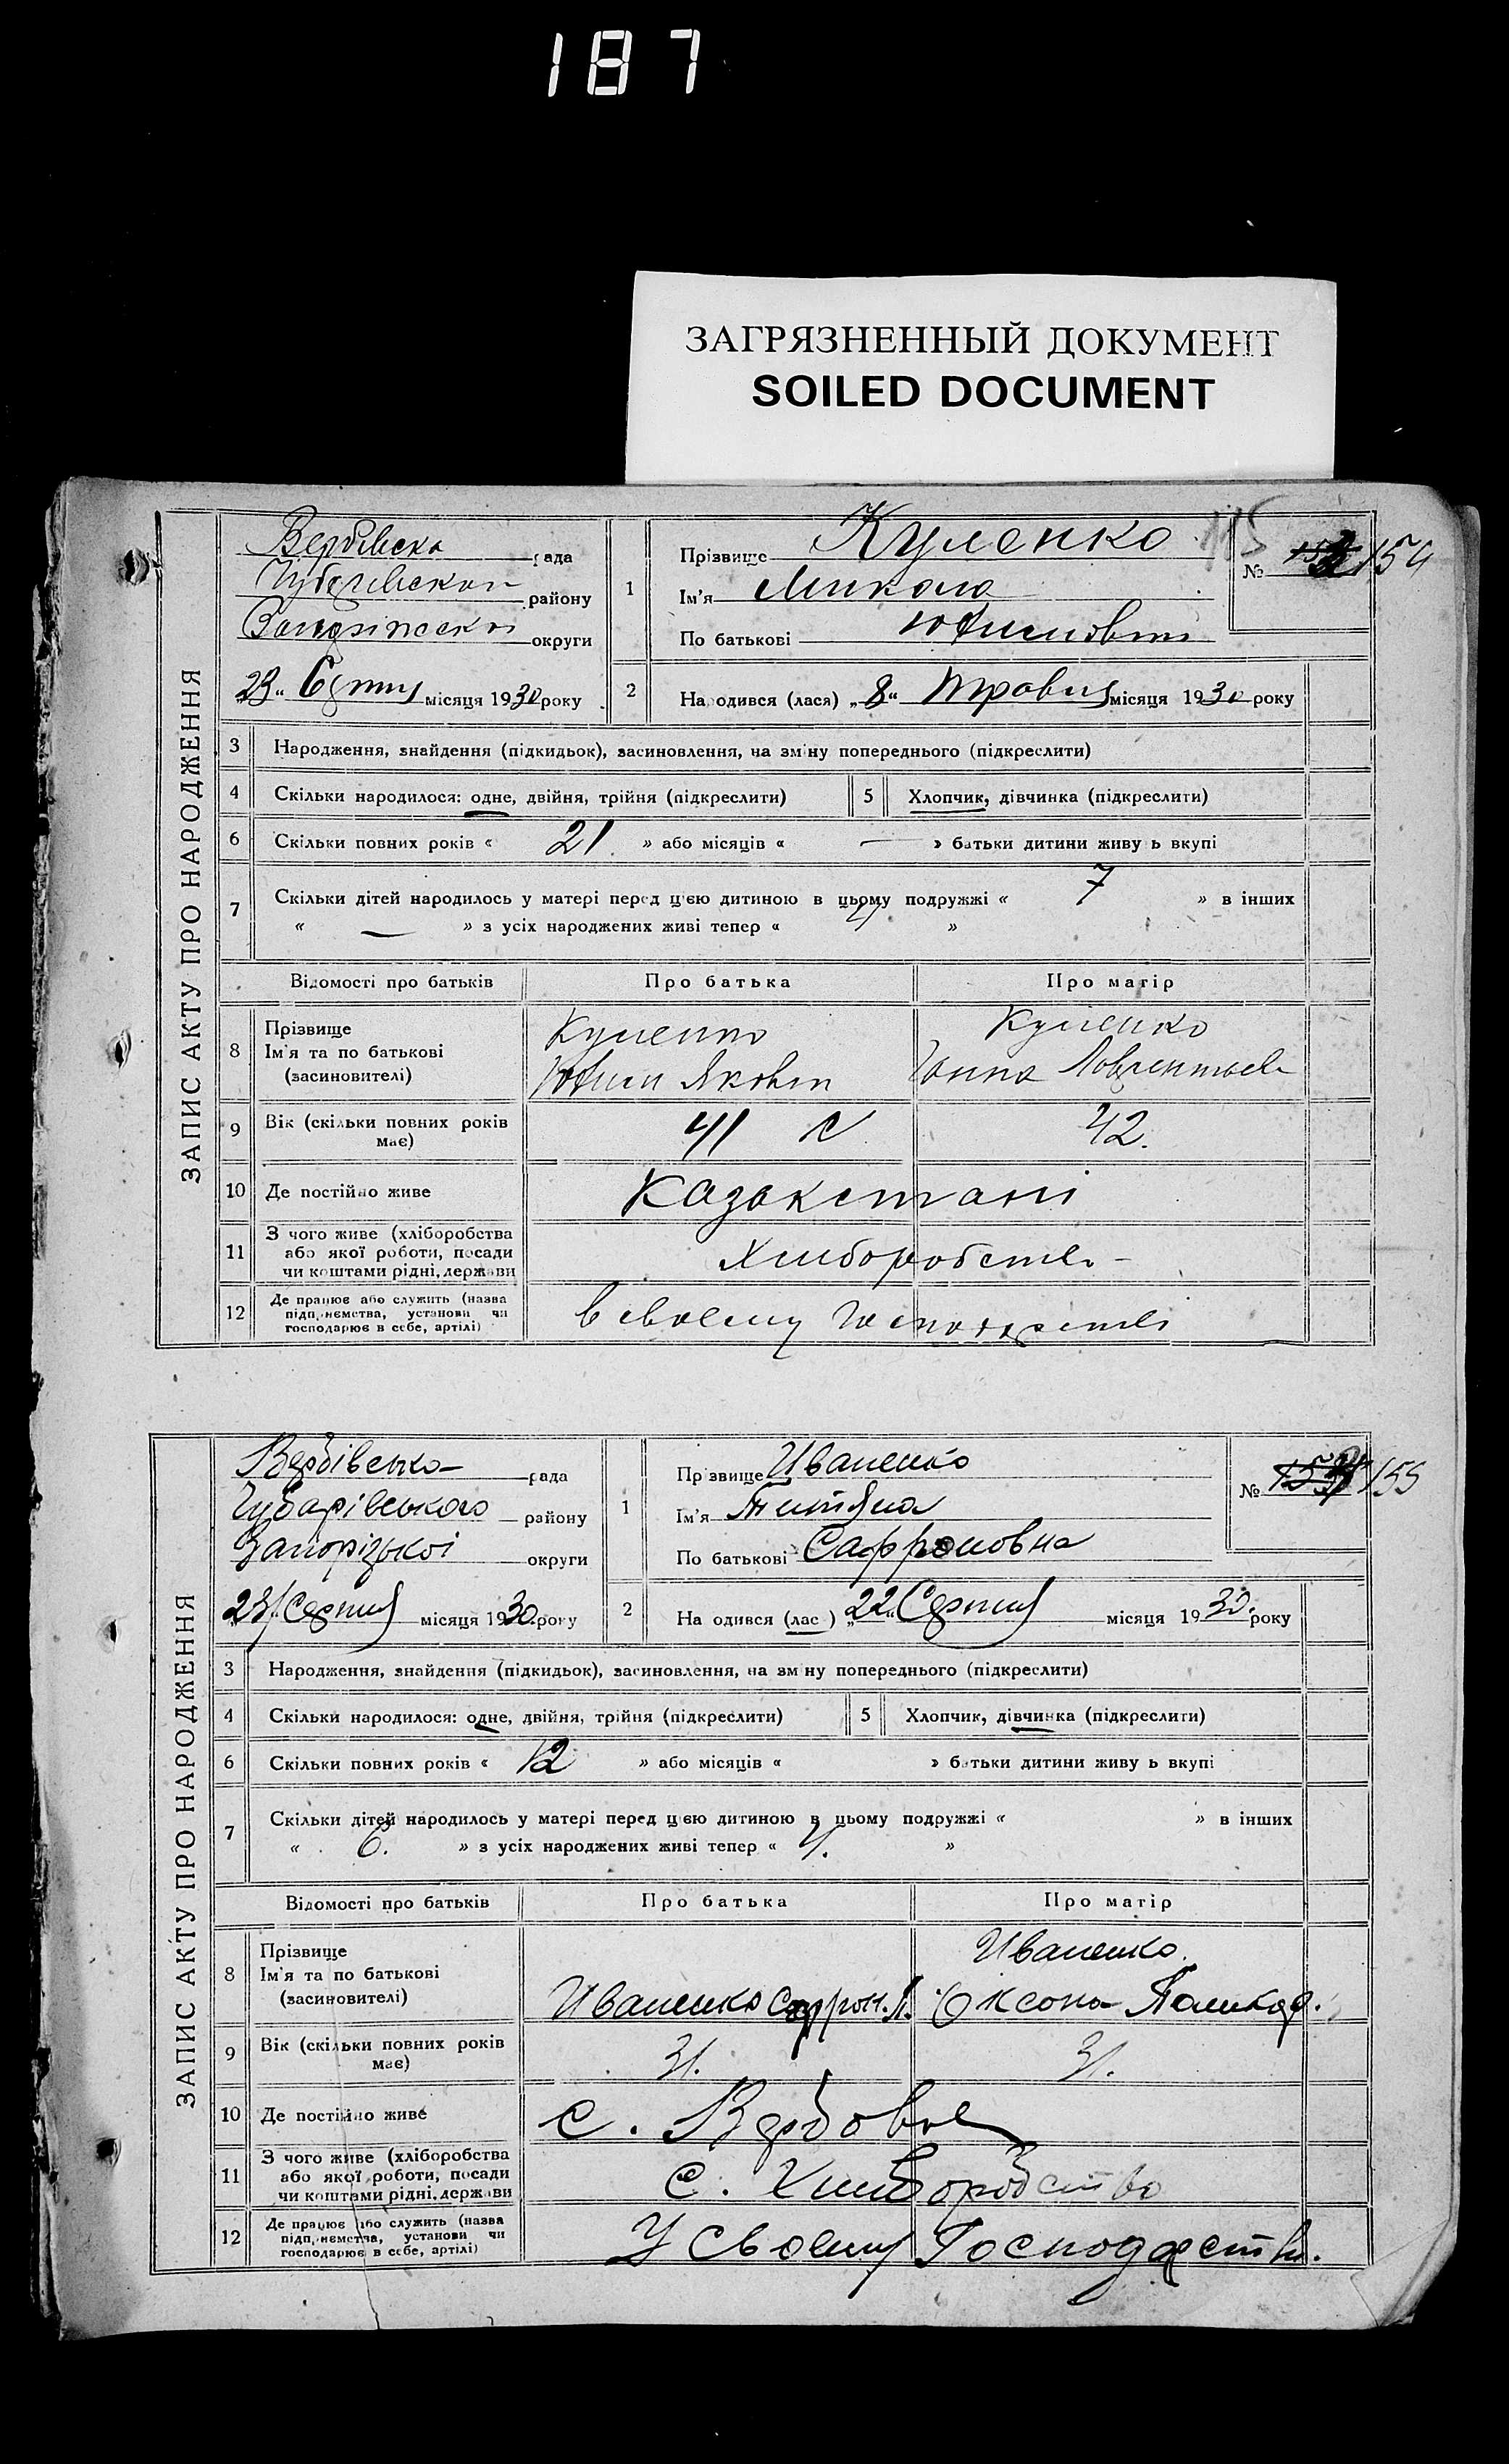 187
ЗАГРЯЗНЕННЫЙ ДОКУМЕНТ
SOILED DOCUMENT
ЗАПИС АКТУ ПРО НАРОДЖЕННЯ
Вербівска рада
району
округи
23 Серпня місяця 1930 року
1 Прізвище Куленко
Ім'я Микола
По батькові
115
№ 154
2 Народився (лася) „8“ Травня місяця 1930 року
3 Народження, знайдення (підкидьок), засиновлення, на зміну попереднього (підкреслити)
4 Скільки народилося: одне, двійня, трійня (підкреслити) 5 Хлопчик, дівчинка (підкреслити)
6 Скільки повних років « 21 » або місяців « — » батьки дитини живуть вкупі
7 Скільки дітей народилось у матері перед цією дитиною в цьому подружжі « 7 » в інших
« — » з усіх народжених живі тепер « 4 »
Відомості про батьків Про батька Про матір
8 Прізвище Куленко Куленко
Ім'я та по батькові Яковл Ганна Лаврентьев
(засиновителі)
9 Вік (скільки повних років має) 41 42.
10 Де постійно живе Казакстані
11 З чого живе (хліборобства або якої роботи, посади чи коштами рідні, держави Хлиборобство
12 Де працює або служить (назва підприємства, установи чи господарює в себе, артілі) в своему господарстві
ЗАПИС АКТУ ПРО НАРОДЖЕННЯ
Вербівська рада
Чубарівського району
Запорізької округи
23 Серпня місяця 1930 року
1 Прізвище Иваненко
Ім'я Титяна
По батькові Сафроновна
№ 155
2 Народився (лася) „22“ Серпня місяця 1930. року
3 Народження, знайдення (підкидьок), засиновлення, на зміну попереднього (підкреслити)
4 Скільки народилося: одне, двійня, трійня (підкреслити) 5 Хлопчик, дівчинка (підкреслити)
6 Скільки повних років « 12 » або місяців « » батьки дитини живуть вкупі
7 Скільки дітей народилось у матері перед цією дитиною в цьому подружжі « » в інших
« 6. » з усіх народжених живі тепер « 4. »
Відомості про батьків Про батька Про матір
8 Прізвище Иваненко.
Ім'я та по батькові
(засиновителі) Иваненко Сафрон. Л. Оксона
9 Вік (скільки повних років має) 31. 31.
10 Де постійно живе с. Вербове
11 З чого живе (хліборобства або якої роботи, посади чи коштами рідні, держави С. Хлиборобство
12 Де працює або служить (назва підприємства, установи чи господарює в себе, артілі) У своему Господарстві.